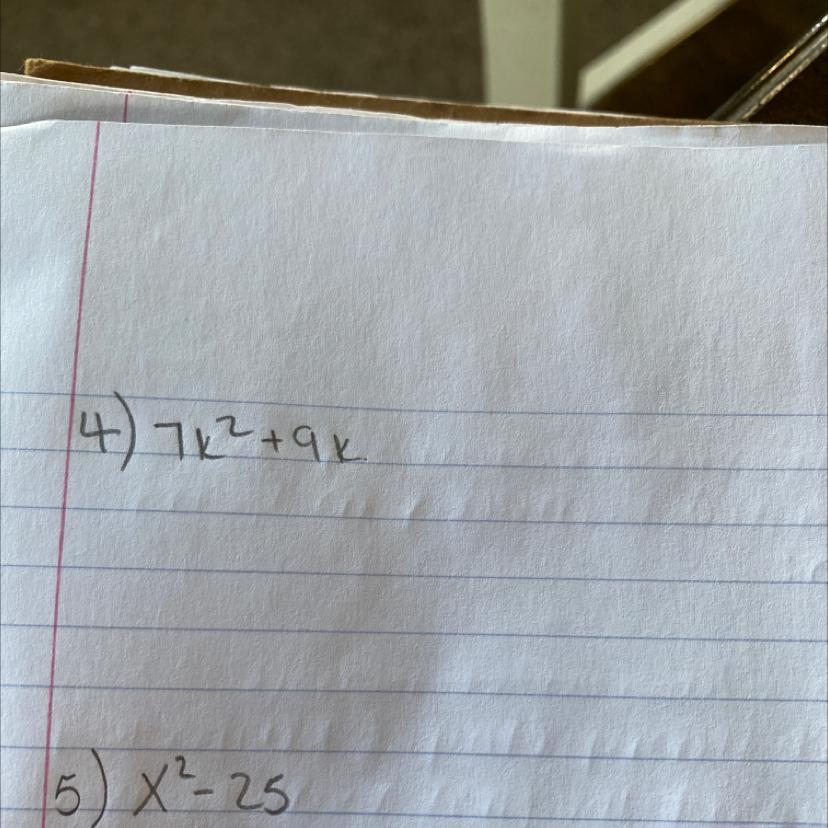 4) 7k²+9k
5) x²-25